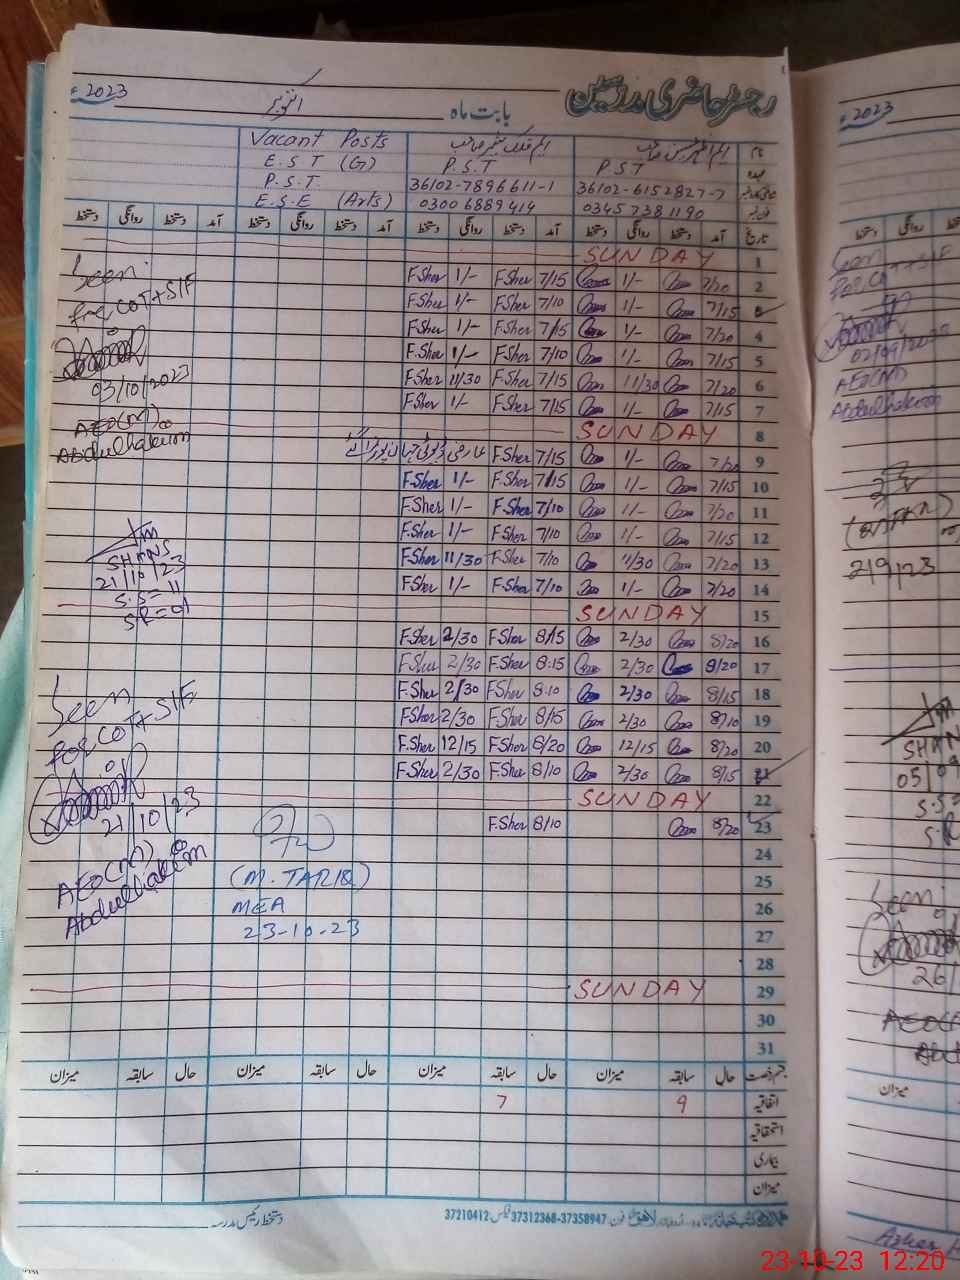 رجسٹر حاضری مدرسین
بابت ماہ اکتوبر 2023ء
نام
عہدہ
Vacant Posts
E.S.T (G)
P.S.T.
E.S.E (Arts)
P.S.T
36102-7896611-1
0300 6889414
P.S.T
36102-6152827-7
0345 7381190
تاریخ آمد دستخط روانگی دستخط آمد دستخط روانگی دستخط آمد دستخط روانگی دستخط آمد دستخط روانگی دستخط
1 SUNDAY
2 7/20 1/- 7/15 F.Sher 1/- F.Sher
3 7/15 1/- 7/10 F.Sher 1/- F.Sher
4 7/20 1/- 7/15 F.Sher 1/- F.Sher
5 7/15 1/- 7/10 F.Sher 1/- F.Sher
6 7/20 11/30 7/15 F.Sher 11/30 F.Sher
7 7/15 1/- 7/15 F.Sher 1/- F.Sher
8 SUNDAY
9 7/20 1/- 7/15 F.Sher عارضی ڈیوٹی
10 7/15 1/- 7/15 F.Sher 1/- F.Sher
11 7/20 1/- 7/10 F.Sher 1/- F.Sher
12 7/15 1/- 7/10 F.Sher 1/- F.Sher
13 7/20 11/30 7/10 F.Sher 11/30 F.Sher
14 7/20 1/- 7/10 F.Sher 1/- F.Sher
15 SUNDAY
16 8/20 2/30 8/15 F.Sher 2/30 F.Sher
17 8/20 2/30 8:15 F.Sher 2/30 F.Sher
18 8/15 2/30 8:10 F.Sher 2/30 F.Sher
19 8/10 2/30 8/15 F.Sher 2/30 F.Sher
20 8/20 12/15 8/20 F.Sher 12/15 F.Sher
21 8/15 2/30 8/10 F.Sher 2/30 F.Sher
22 SUNDAY
23 8/20 8/10 F.Sher
24
25
26
27
28
29 SUNDAY
30
31
Seen
for COT+SIF
03/10/2023
AEO(M)
Abdulhakim
SHKNS
21/10/23
S.S=11
SR=01
Seen
for COT+SIF
21/10/23
AEO(M)
Abdulhakim
(M. TARIQ)
MEA
23-10-23
حال سابقہ میزان حال سابقہ میزان حال سابقہ میزان حال سابقہ میزان
اتفاقیہ 9 7
استحقاقیہ
بیماری
میزان
فون 37358947-37312368 فیکس 37210412
دستخط رئیس مدرسہ
2023ء
دستخط روانگی
Seen
02/09/20
AEO(M)
Abdulhakim
2/9/23
SHKN
05/09
S.S=
S.R
Seen
26/
میزان
23-10-23 12:20